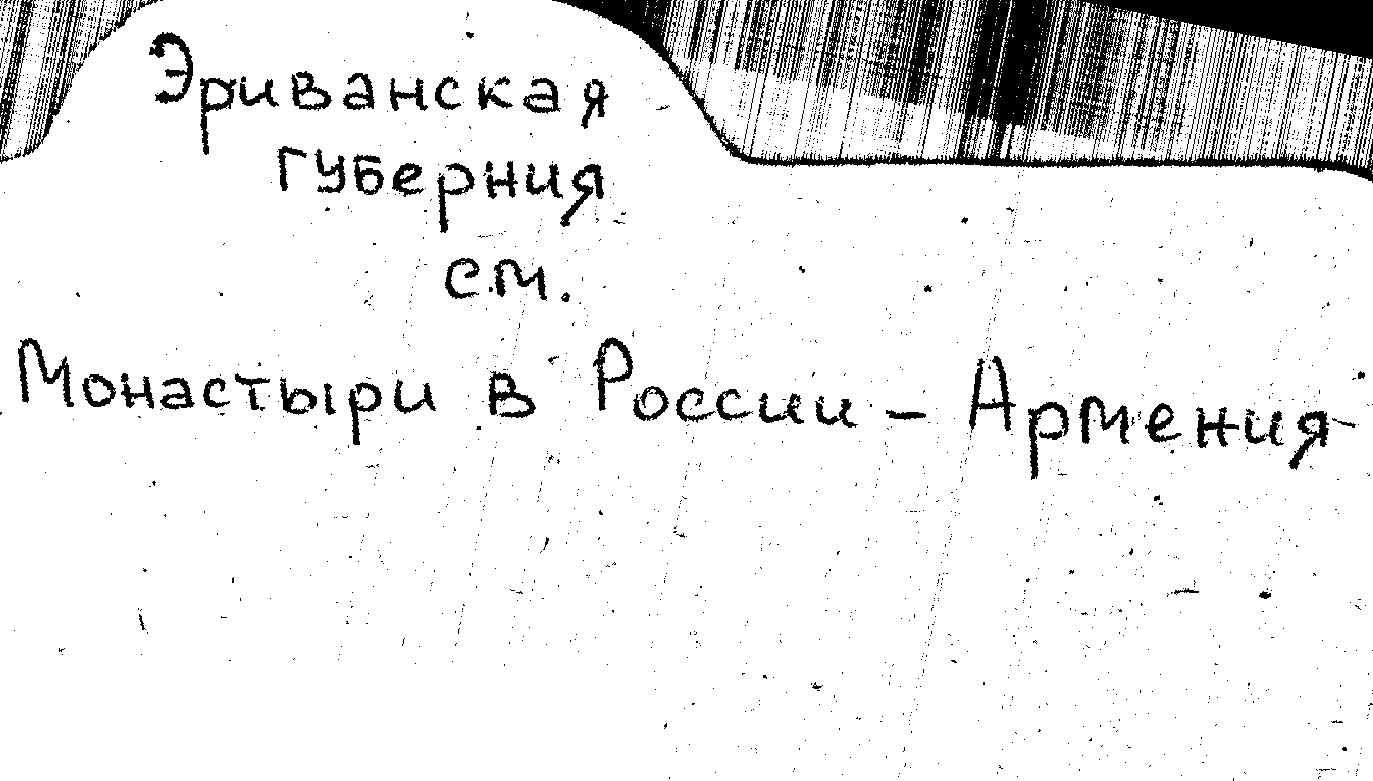 Эриванская
губерния
см.
Монастыри в России - Армения